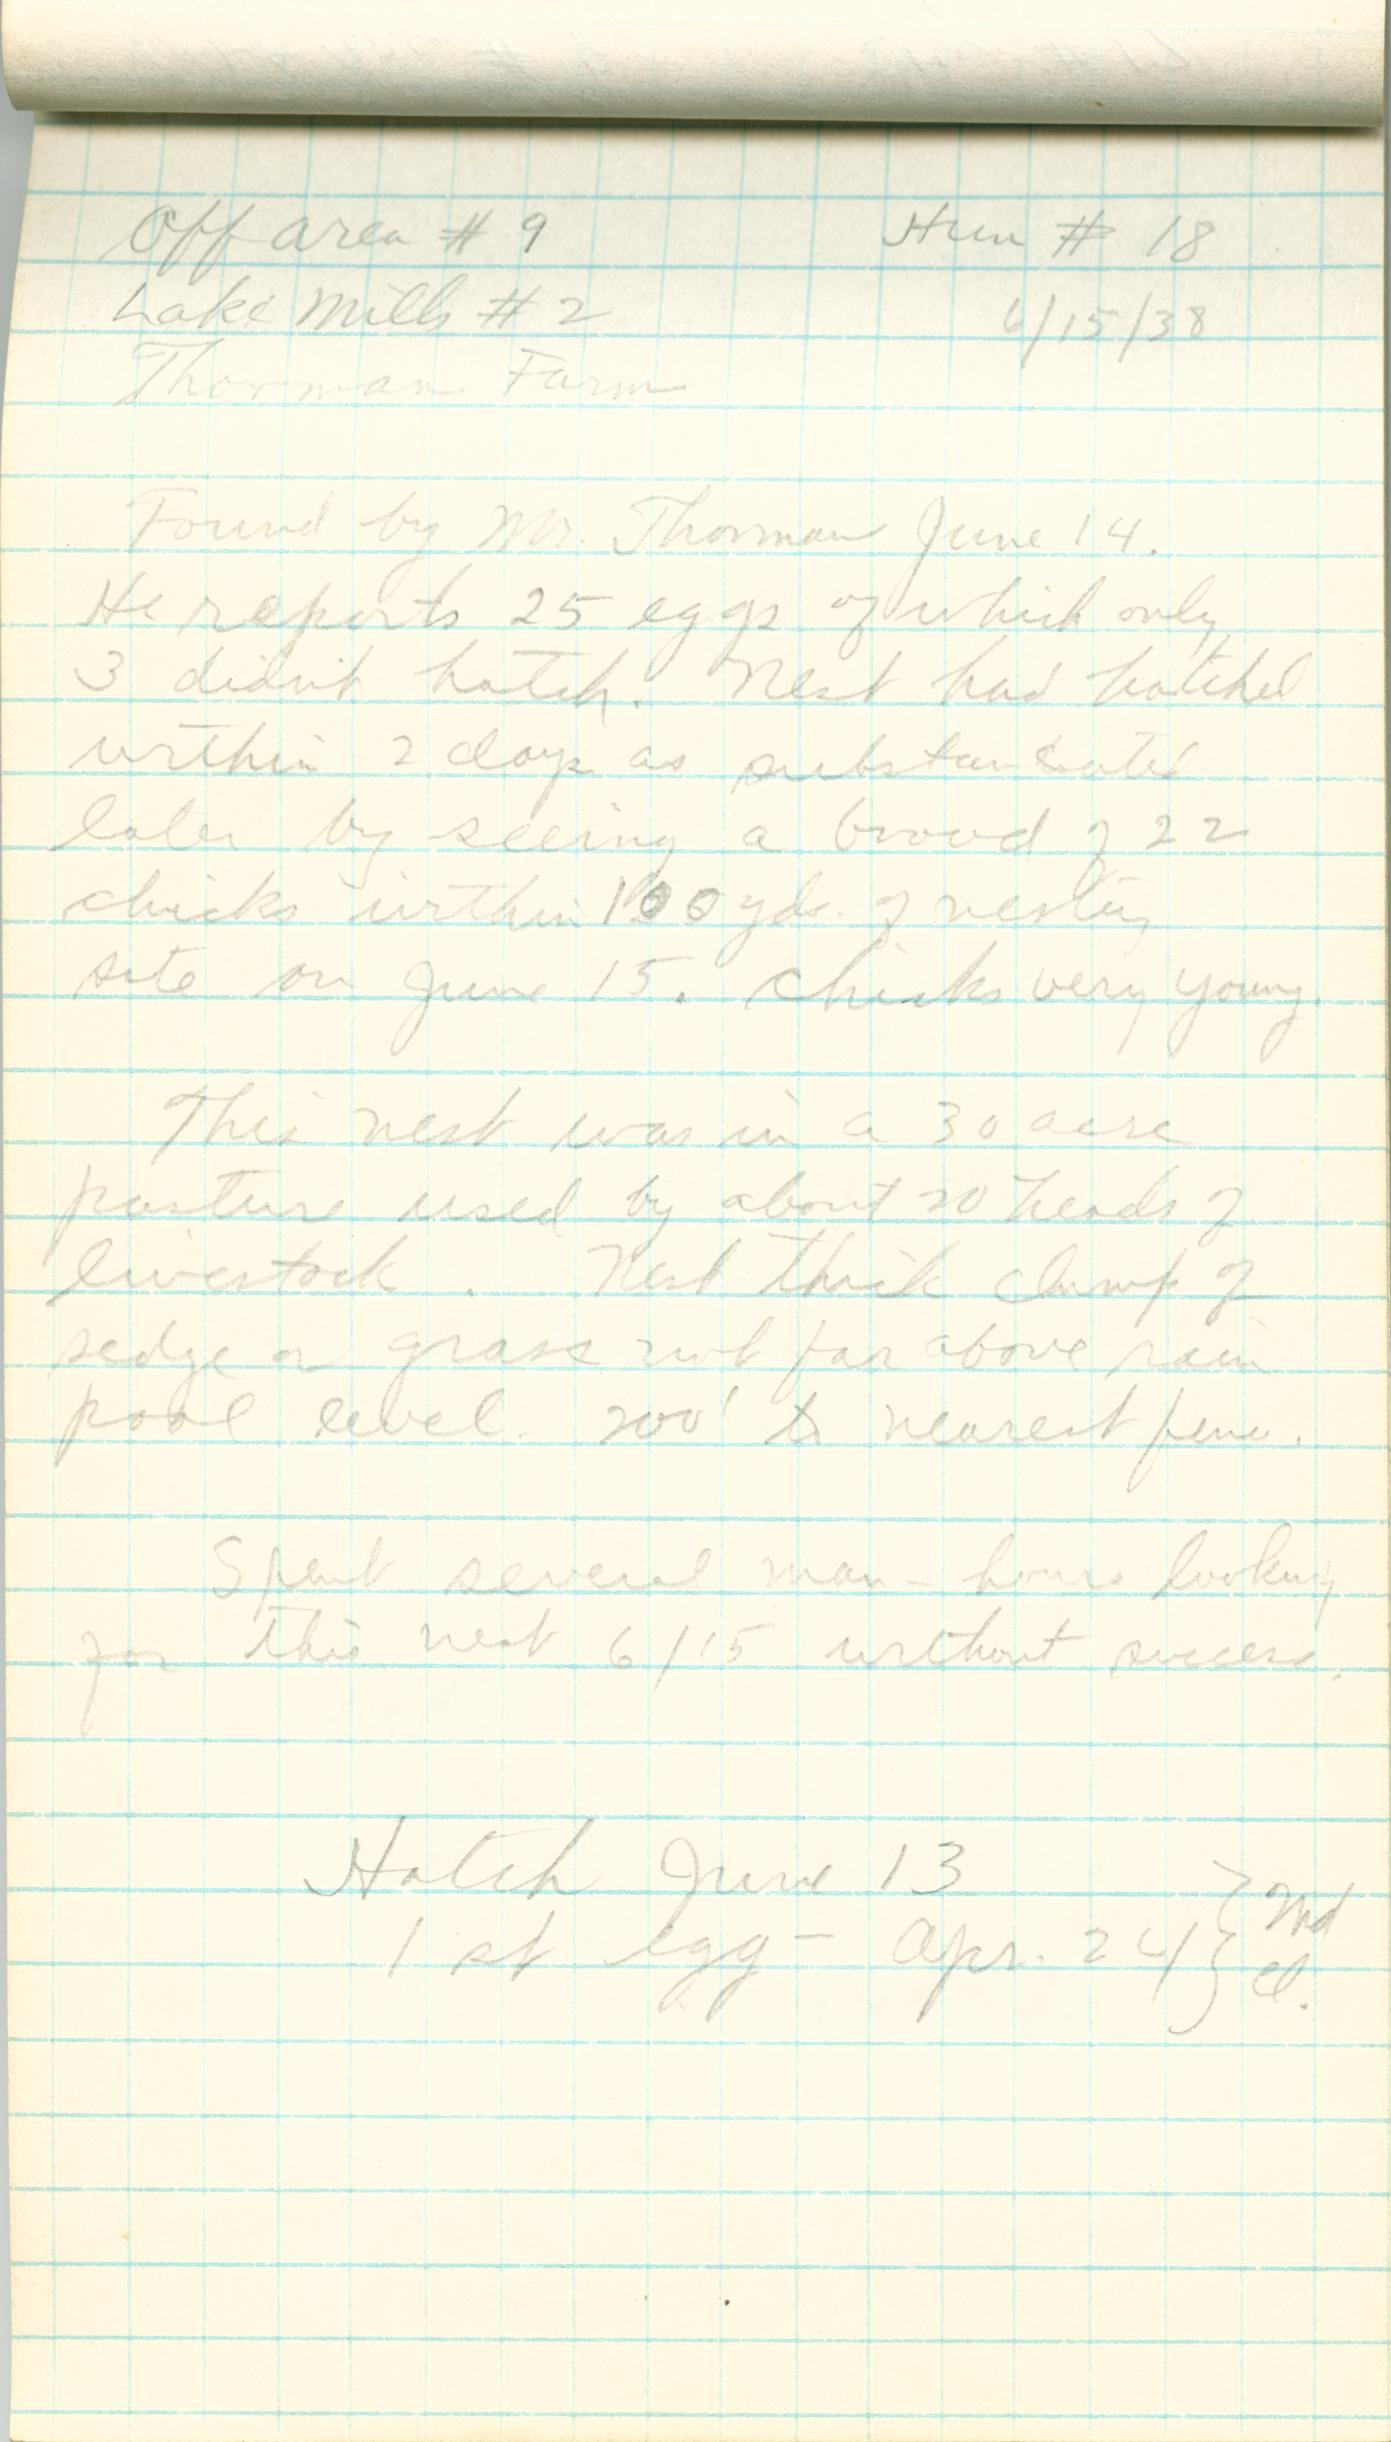 Off area # 9 Hun # 18
Lake Mills # 2 6/15/38
Thorman Farm
Found by Mr. Thorman June 14.
He reports 25 eggs of which only
3 didn't hatch. Nest had hatched
within 2 days as substantiated
later by seeing a brood of 22
chicks within 100 yds. of nesting
site on June 15. Chicks very young.
This nest was in a 30 acre
pasture used by about 20 heads of
livestock. Nest thick clump of
sedge or grass not far above rain
pool level. 200' to nearest fence.
Spent several man-hours looking
for this nest 6/15 without success.
Hatch June 13
1st egg - Apr. 24 } 2nd
cl.